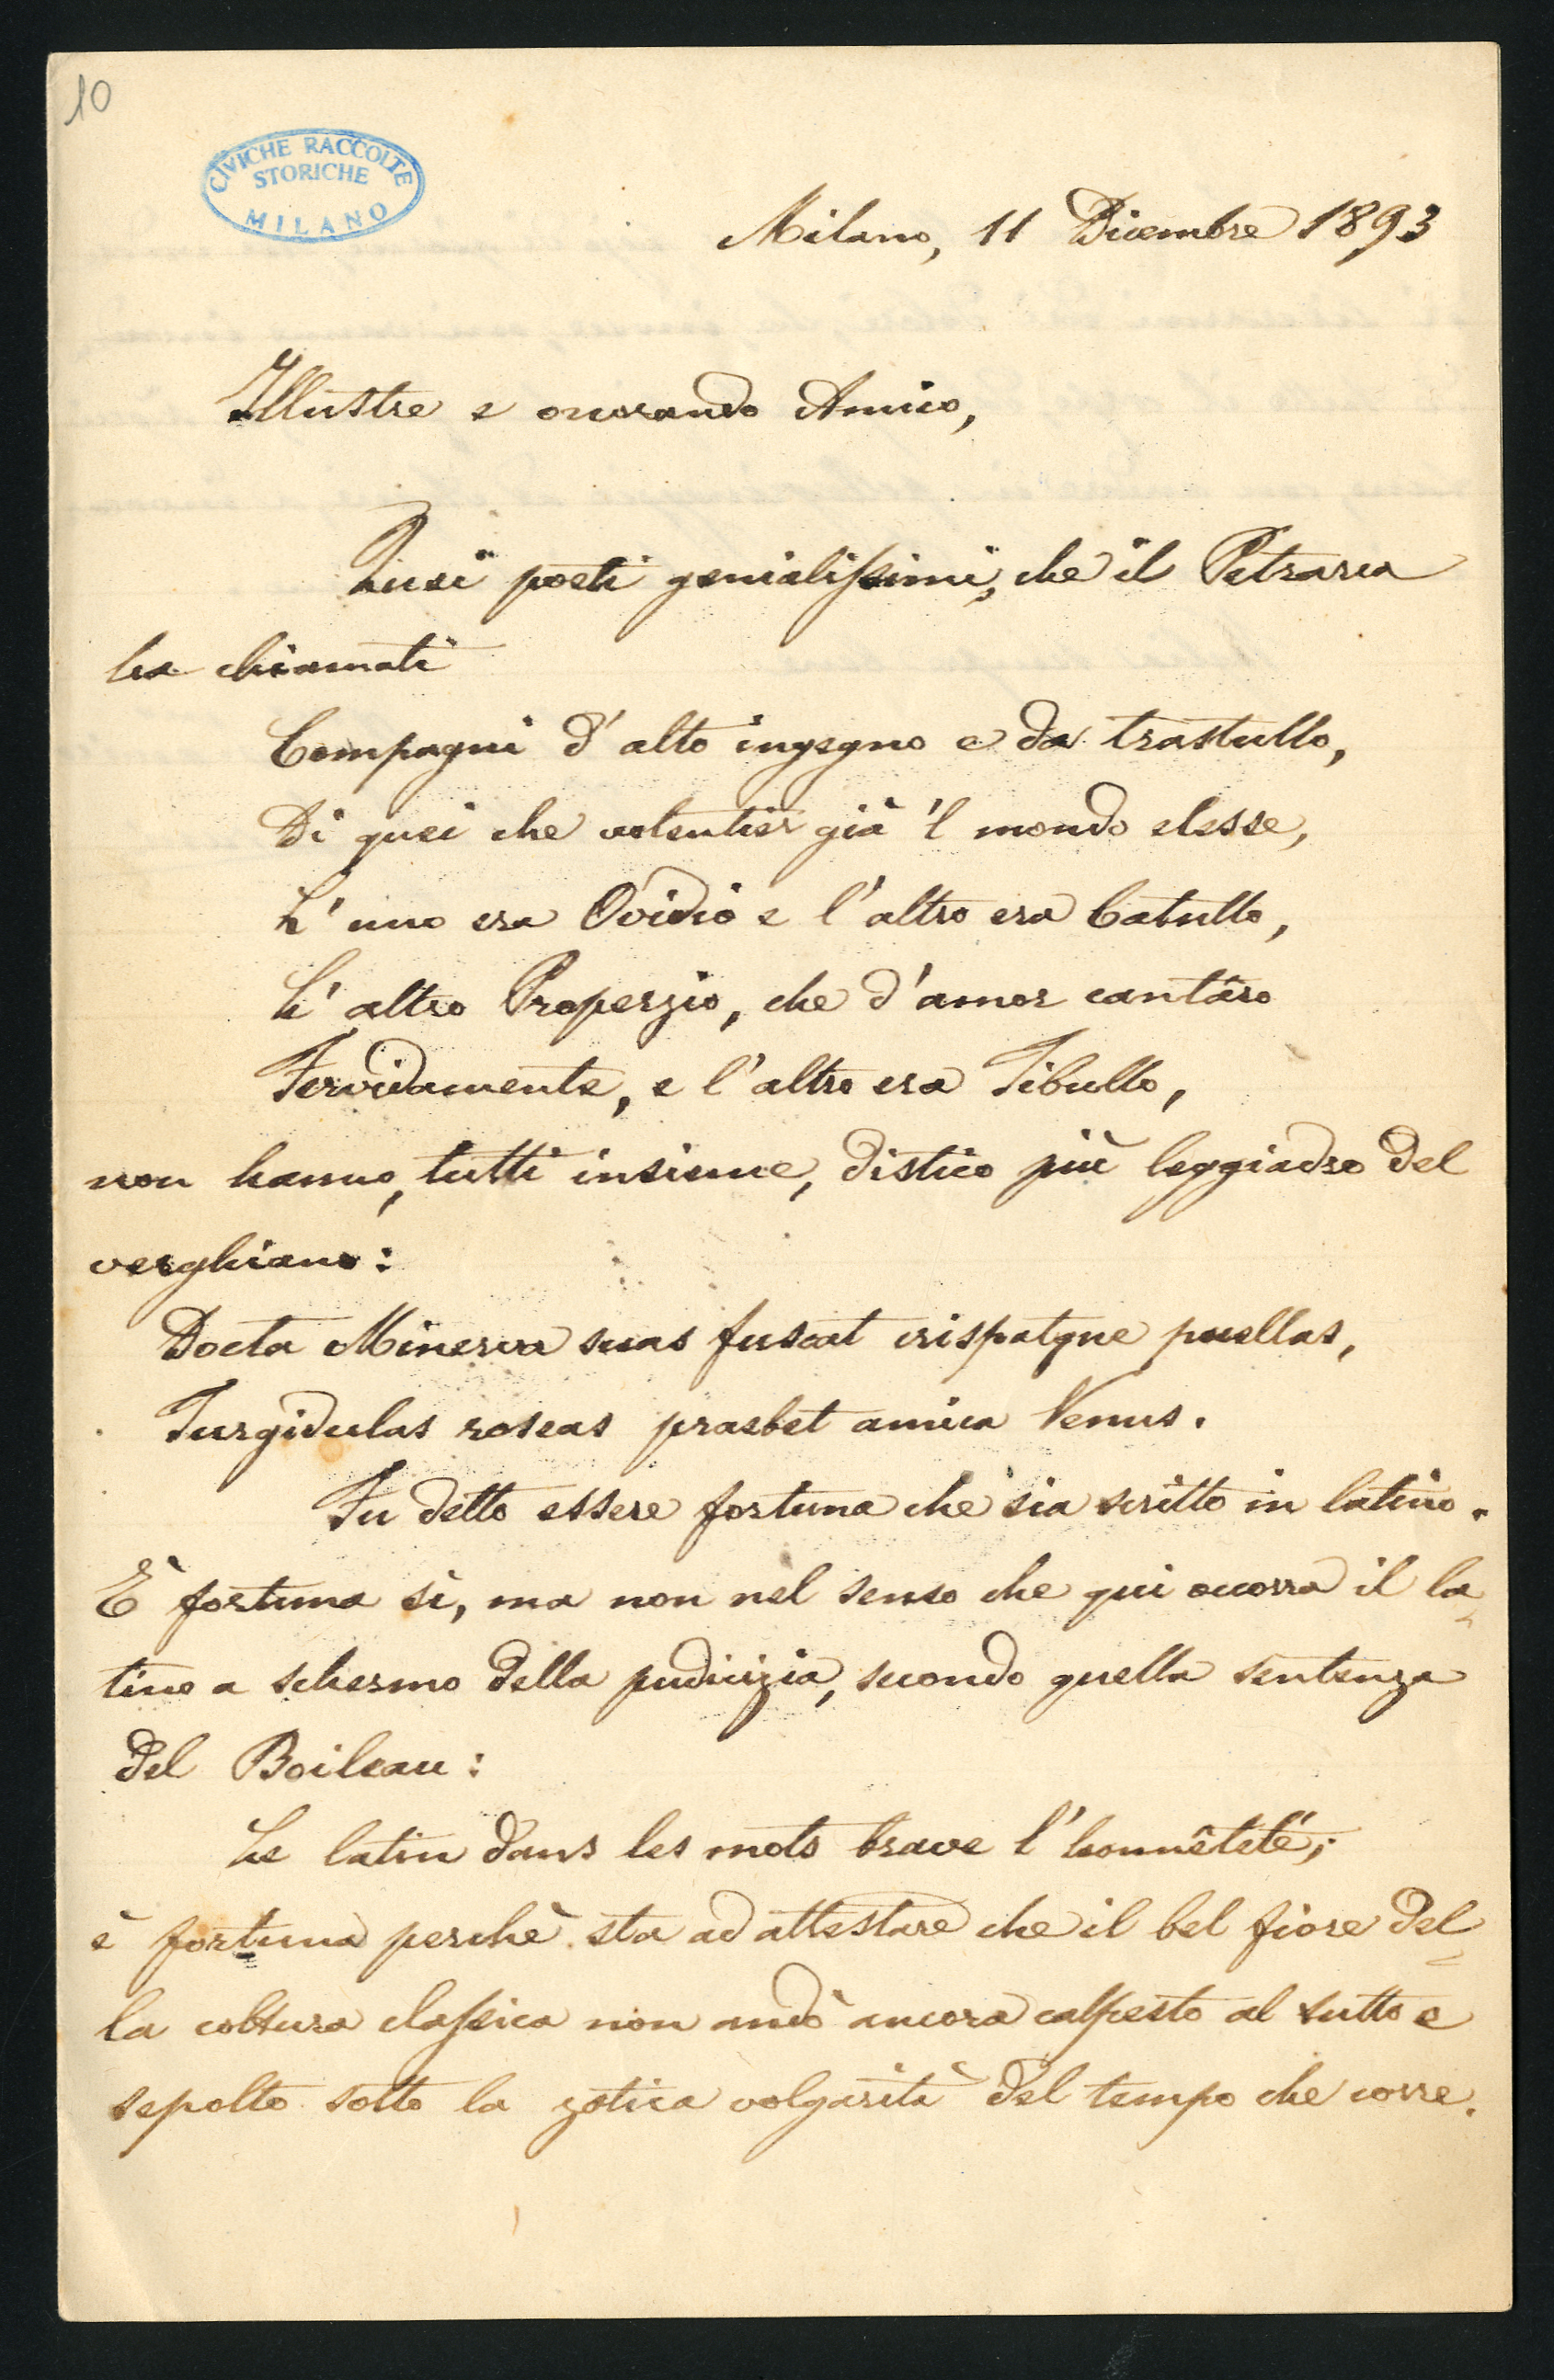 10
CIVICHE RACCOLTE
STORICHE
MILANO
Milano, 11 Dicembre 1893
Illustre e onorando Amico,
Quei poeti genialissimi, che il Petrarca
ha chiamati
Compagni d'alto ingegno e da trastullo,
Di quei che volentier già 'l mondo elesse,
L'uno era Ovidio e l'altro era Catullo,
L'altro Properzio, che d'amor cantâro
Fervidamente, e l'altro era Tibullo,
non hanno, tutti insieme, distico più leggiadro del
verghiano:
Docta Minerva suas fuscat crispatque puellas,
Turgidulas roseas praebet amica Venus.
Fu detto essere fortuna che sia scritto in latino.
È fortuna sì, ma non nel senso che qui occorra il la-
tino a schermo della pudicizia, secondo quella sentenza
del Boileau:
Le latin dans les mots brave l'honnêteté;
è fortuna perchè sta ad attestare che il bel fiore del-
la coltura classica non andò ancora calpesto al tutto e
sepolto sotto la zotica volgarità del tempo che corre.